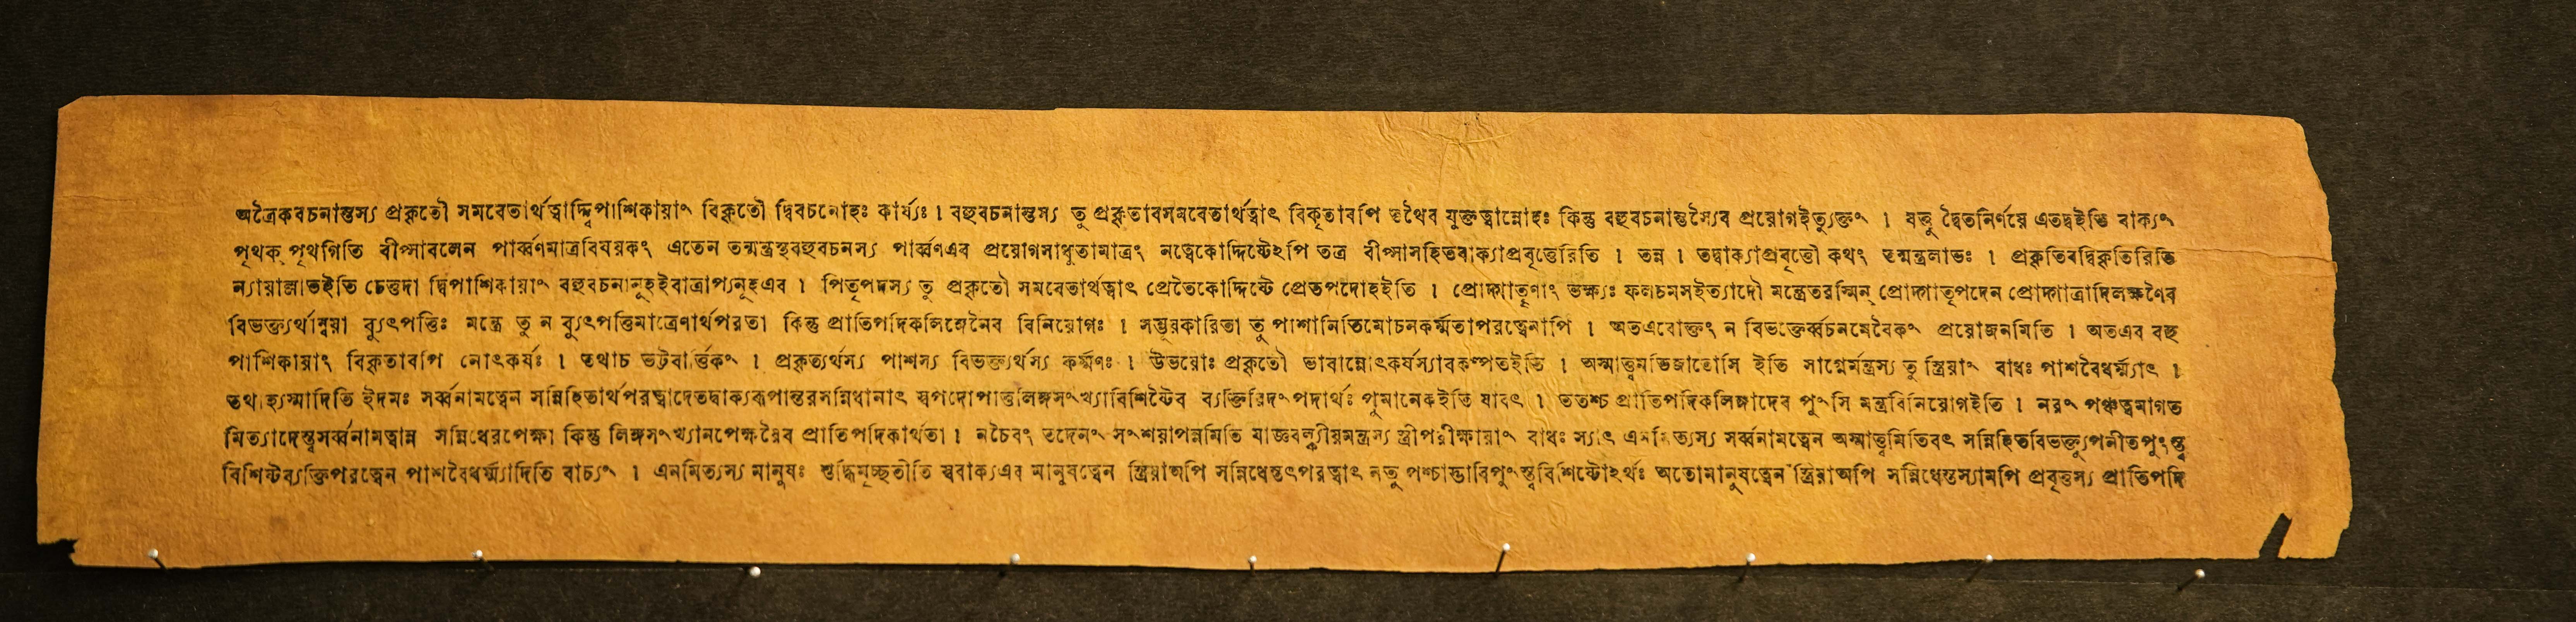 অত্রৈকবচনান্তস্য প্রকৃতৌ সমবেতার্থত্বাদ্দ্বিপাশিকায়াং বিকৃতৌ দ্বিবচনোহঃ কার্য্যঃ । বহুবচনান্তস্য তু প্রকৃতাবসমবেতার্থত্বাৎ বিকৃতাবপি তথৈব যুক্তত্বান্নোহঃ কিন্তু বহুবচনান্তস্যৈব প্রয়োগইত্যুক্তং । যত্তু দ্বৈতনির্ণয়ে এতদ্বইতি বাক্যং
পৃথক্ পৃথগিতি বীপ্সাবলেন পার্ব্বণমাত্রবিষয়কং এতেন তন্মন্ত্রস্থবহুবচনস্য পার্ব্বণএব প্রয়োগসাধুতামাত্রং নত্বেকোদ্দিষ্টেঽপি তত্র বীপ্সাসহিতবাক্যাপ্রবৃত্তেরিতি । তন্ন । তদ্বাক্যাপ্রবৃত্তৌ কথং তন্মন্ত্রলাভঃ । প্রকৃতিবদ্বিকৃতিরিতি
ন্যায়াল্লাভইতি চেত্তদা দ্বিপাশিকায়াং বহুবচনানূহইবাত্রাপ্যনূহএব । পিতৃপদস্য তু প্রকৃতৌ সমবেতার্থত্বাৎ প্রেতৈকোদ্দিষ্টে প্রেতপদোহইতি । প্রোদ্গাতৃণাং ভক্ষ্যঃ ফলচমসইত্যাদৌ মন্ত্রেতরস্মিন্ প্রোদ্গাতৃপদেন প্রোদ্গাত্রাদিলক্ষণৈব
বিভক্ত্যর্থান্বয়া ব্যুৎপত্তিঃ মন্ত্রে তু ন ব্যুৎপত্তিমাত্রেণার্থপরতা কিন্তু প্রাতিপদিকলিঙ্গেনৈব বিনিয়োগঃ । সম্ভূয়কারিতা তু পাশানিতিমোচনকর্ম্মতাপরত্বেনাপি । অতএবোক্তং ন বিভক্তের্ব্বচনমেবৈকং প্রয়োজনমিতি । অতএব বহু
পাশিকায়াং বিকৃতাবপি নোৎকর্ষঃ । তথাচ ভট্টবার্ত্তিকং । প্রকৃত্যর্থস্য পাশস্য বিভক্ত্যর্থস্য কর্ম্মণঃ । উভয়োঃ প্রকৃতৌ ভাবান্নোৎকর্ষস্যাবকল্পতইতি । অস্মাত্ত্বমভিজাতোসি ইতি সাগ্নের্মন্ত্রস্য তু স্ত্রিয়াং বাধঃ পাশবৈধর্ম্ম্যাৎ ।
তথাহ্যস্মাদিতি ইদমঃ সর্ব্বনামত্বেন সন্নিহিতার্থপরত্বাদেতদ্বাক্যরূপান্তরসন্নিধানাৎ স্বপদোপাত্তলিঙ্গসংখ্যাবিশিষ্টৈব ব্যক্তিরিদংপদার্থঃ পুমানেকইতি যাবৎ । ততশ্চ প্রাতিপদিকলিঙ্গাদেব পুংসি মন্ত্রবিনিয়োগইতি । নরং পঞ্চত্বমাগত
মিত্যাদেস্ত্বসর্ব্বনামত্বান্ন সন্নিধেরপেক্ষা কিন্তু লিঙ্গসংখ্যানপেক্ষয়ৈব প্রাতিপদিকার্থতা । নচৈবং তদেনং সংশয়াপন্নমিতি যাজ্ঞবল্কীয়মন্ত্রস্য স্ত্রীপরীক্ষায়াং বাধঃ স্যাৎ এনমিত্যস্য সর্ব্বনামত্বেন অস্মাত্ত্বমিতিবৎ সন্নিহিতবিভক্ত্যুপনীতপুংস্ত্ব
বিশিষ্টব্যক্তিপরত্বেন পাশবৈধর্ম্ম্যাদিতি বাচ্যং । এনমিত্যস্য মানুষঃ শুদ্ধিমৃচ্ছতীতি স্ববাক্যএব মানুষত্বেন স্ত্রিয়াঅপি সন্নিধেস্তৎপরত্বাৎ নতু পশ্চাদ্ভাবিপুংস্ত্ববিশিষ্টোঽর্থঃ অতোমানুষত্বেন স্ত্রিয়াঅপি সন্নিধেস্তস্যামপি প্রবৃত্তস্য প্রাতিপদি